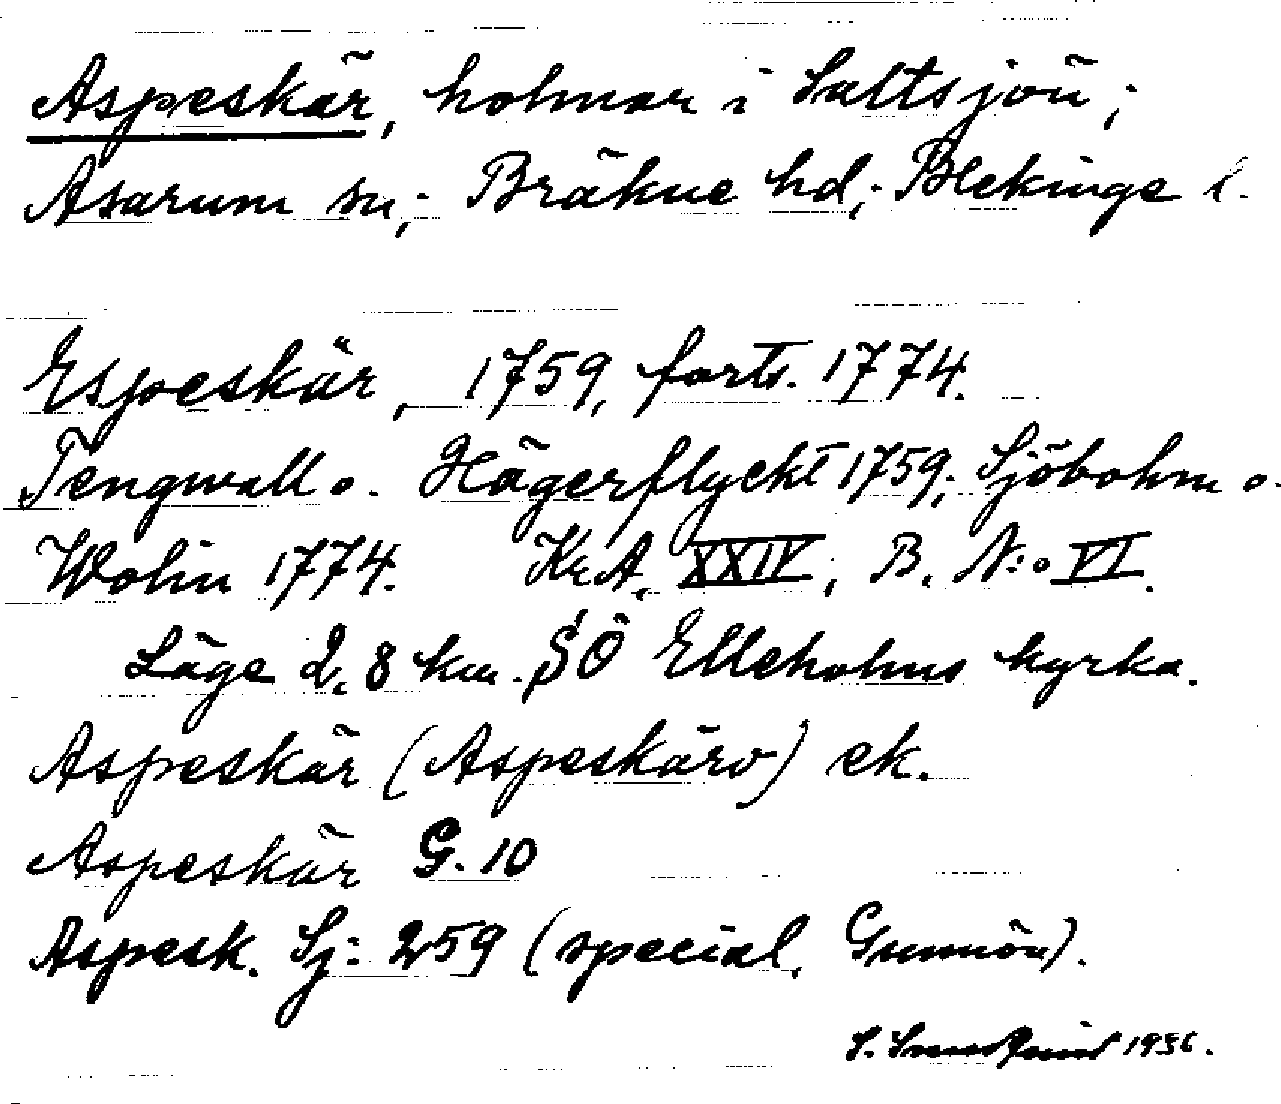 Aspeskär, holmar i Saltsjön;
Asarum sn; Bräkne hd; Blekinge l.
Espeskär, 1759, forts. 1774.
Tengwall o. Hägerflyckt 1759; Sjöbohm o.
Wolin 1774. Kr.A. XXIV, B. N:o VI.
Läge 2,8 km. SÖ Elleholms kyrka.
Aspeskär (Aspeskärv) ek.
Aspeskär G. 10
Aspesk. Sj: 259 (special. Gunnön).
S. 1936.